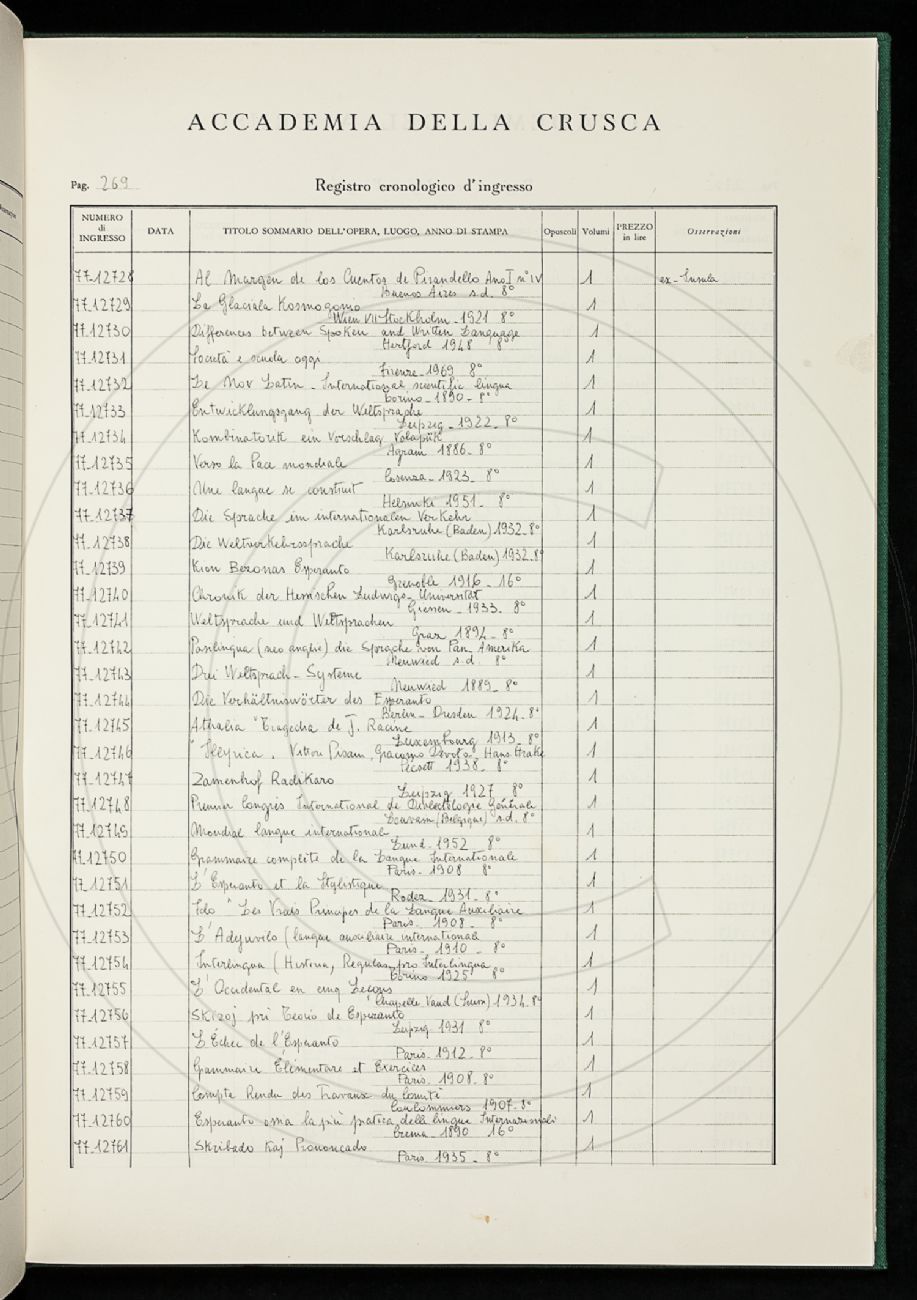 ACCADEMIA DELLA CRUSCA
Pag. 269
Registro cronologico d'ingresso
NUMERO di INGRESSO DATA TITOLO SOMMARIO DELL'OPERA, LUOGO, ANNO DI STAMPA Opuscoli Volumi PREZZO in lire Osservazioni
77-12728 Al Margen de los Cuentos de Pirandello Ano I n° IV 1 ex-Insula
Buenos Aires s.d. 8°
77-12729 La Glaciala Kosmogonio 1
Wien VII Stockholm - 1921 8°
77-12730 Differences between Spoken and Written Language 1
Hertford 1948 8°
77-12731 Società e scuola oggi 1
Firenze - 1969 8°
77-12732 Le Nov Latin - International scientific lingua 1
Torino - 1890 - 8°
77-12733 Entwicklungsgang der Weltsprache 1
Leipzig - 1922 - 8°
77-12734 Kombinatorik ein Vorschlag Volapük 1
Agram 1886 - 8°
77-12735 Verso la Pace mondiale 1
Cosenza - 1923 - 8°
77-12736 Une langue se construit 1
Helsinki 1951 - 8°
77-12737 Die Sprache im internationalen Verkehr 1
Karlsruhe (Baden) 1932 - 8°
77-12738 Die Weltverkehrssprache 1
Karlsruhe (Baden) 1932 - 8°
77-12739 Kion Bezonas Esperanto 1
Grenoble 1916 - 16°
77-12740 Chronik der Hessischen Ludwigs-Universität 1
Giessen - 1933 - 8°
77-12741 Weltsprache und Weltsprachen 1
Graz 1894 - 8°
77-12742 Panlingua (neo anglie) die Sprache von Pan Amerika 1
Neuwied s.d. 8°
77-12743 Drei Weltsprach-Systeme 1
Neuwied 1889 - 8°
77-12744 Die Verhältniswörter des Esperanto 1
Berlin - Dresden 1924 - 8°
77-12745 Athalia "Tragedia de J. Racine 1
Luxembourg 1913 - 8°
77-12746 "Illyrica. Vittore Pisani, Giacomo Hans 1
1938 - 8°
77-12747 Zamenhof Radikaro 1
Leipzig 1927 8°
77-12748 Premier Congrès International de Dialectologie Générale 1
Louvain (Belgique) s.d. 8°
77-12749 Mondial langue international 1
Lund - 1952 - 8°
77-12750 Grammaire complète de la Langue Internationale 1
Paris - 1908 8°
77-12751 L'Esperanto et la Stylistique 1
Rodez - 1931 - 8°
77-12752 Ido "Les Vrais Principes de la Langue Auxiliaire 1
Paris - 1908 - 8°
77-12753 L'Adjuvilo (langue auxiliaire international 1
Paris - 1910 - 8°
77-12754 Interlingua (Historia, Regulas pro Interlingua 1
Torino - 1925 8°
77-12755 L'Occidental en cinq Leçons 1
Chapelle Vaud 1934 - 8°
77-12756 Skizoj pri Teorio de Esperanto 1
Leipzig 1931 8°
77-12757 L'Échec de l'Esperanto 1
Paris - 1912 - 8°
77-12758 Grammaire Élémentare et Exercices 1
Paris - 1908 - 8°
77-12759 Compte Rendu des Travaux du Comité 1
Coulommiers 1907 - 8°
77-12760 Esperanto ossia la più pratica delle lingue Internazionali 1
Crema - 1890 16°
77-12761 Skribado kaj Prononcado 1
Paris - 1935 - 8°